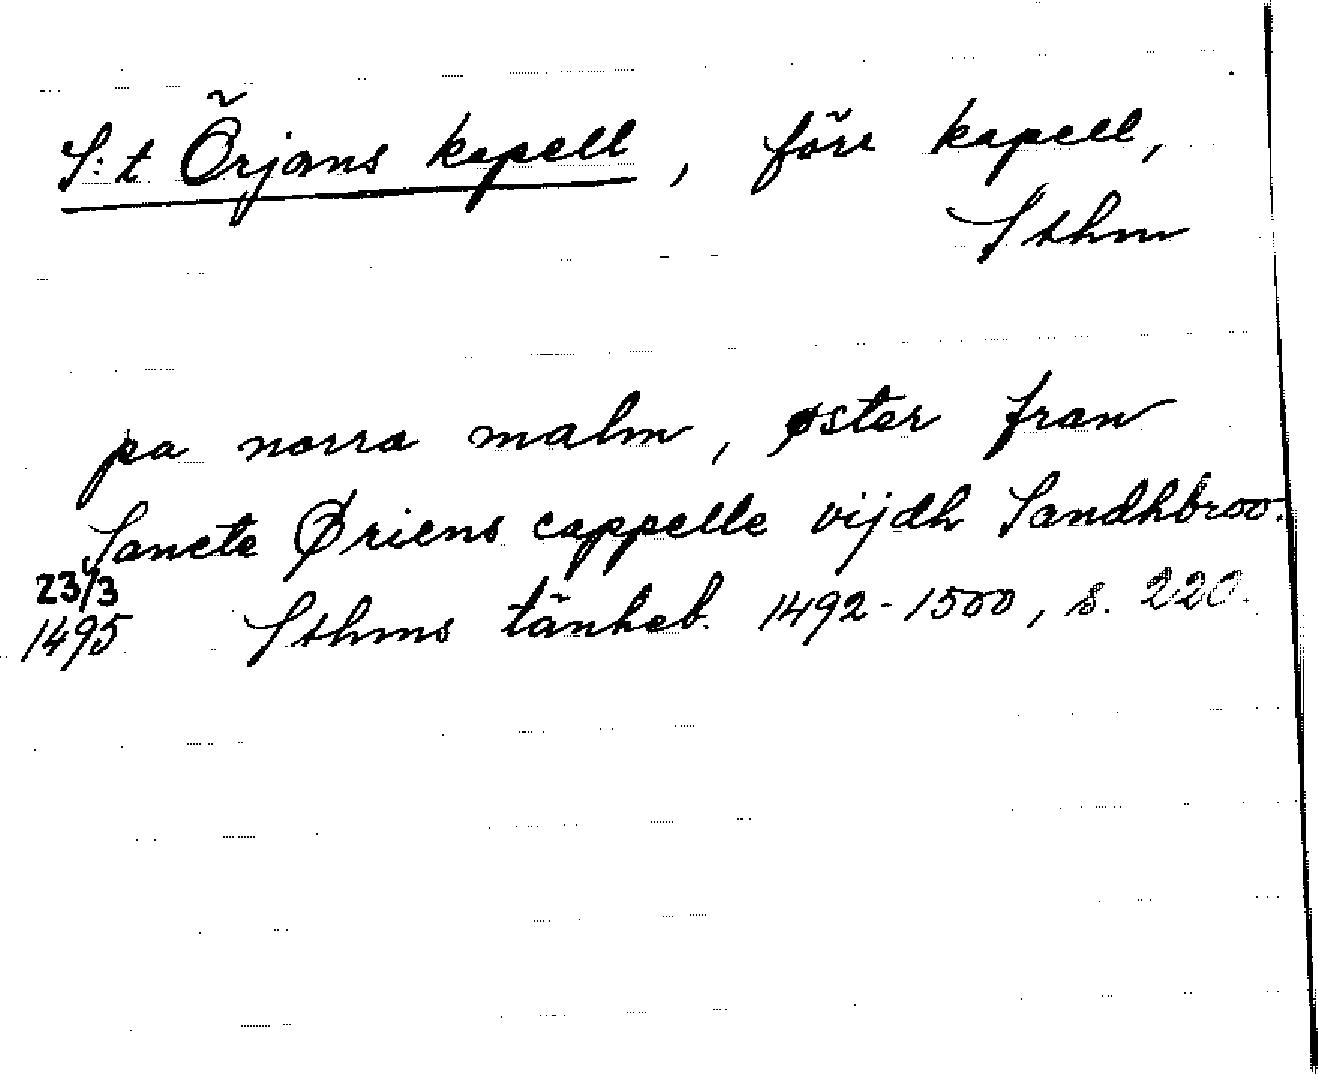 S:t Örjans kapell, förr kapell,
Sthm
pa norra malm, øster fran
Sancte Øriens cappelle vijdh Sandhbroo.
23/3
1495 Sthms tänkeb. 1492-1500, s. 220.